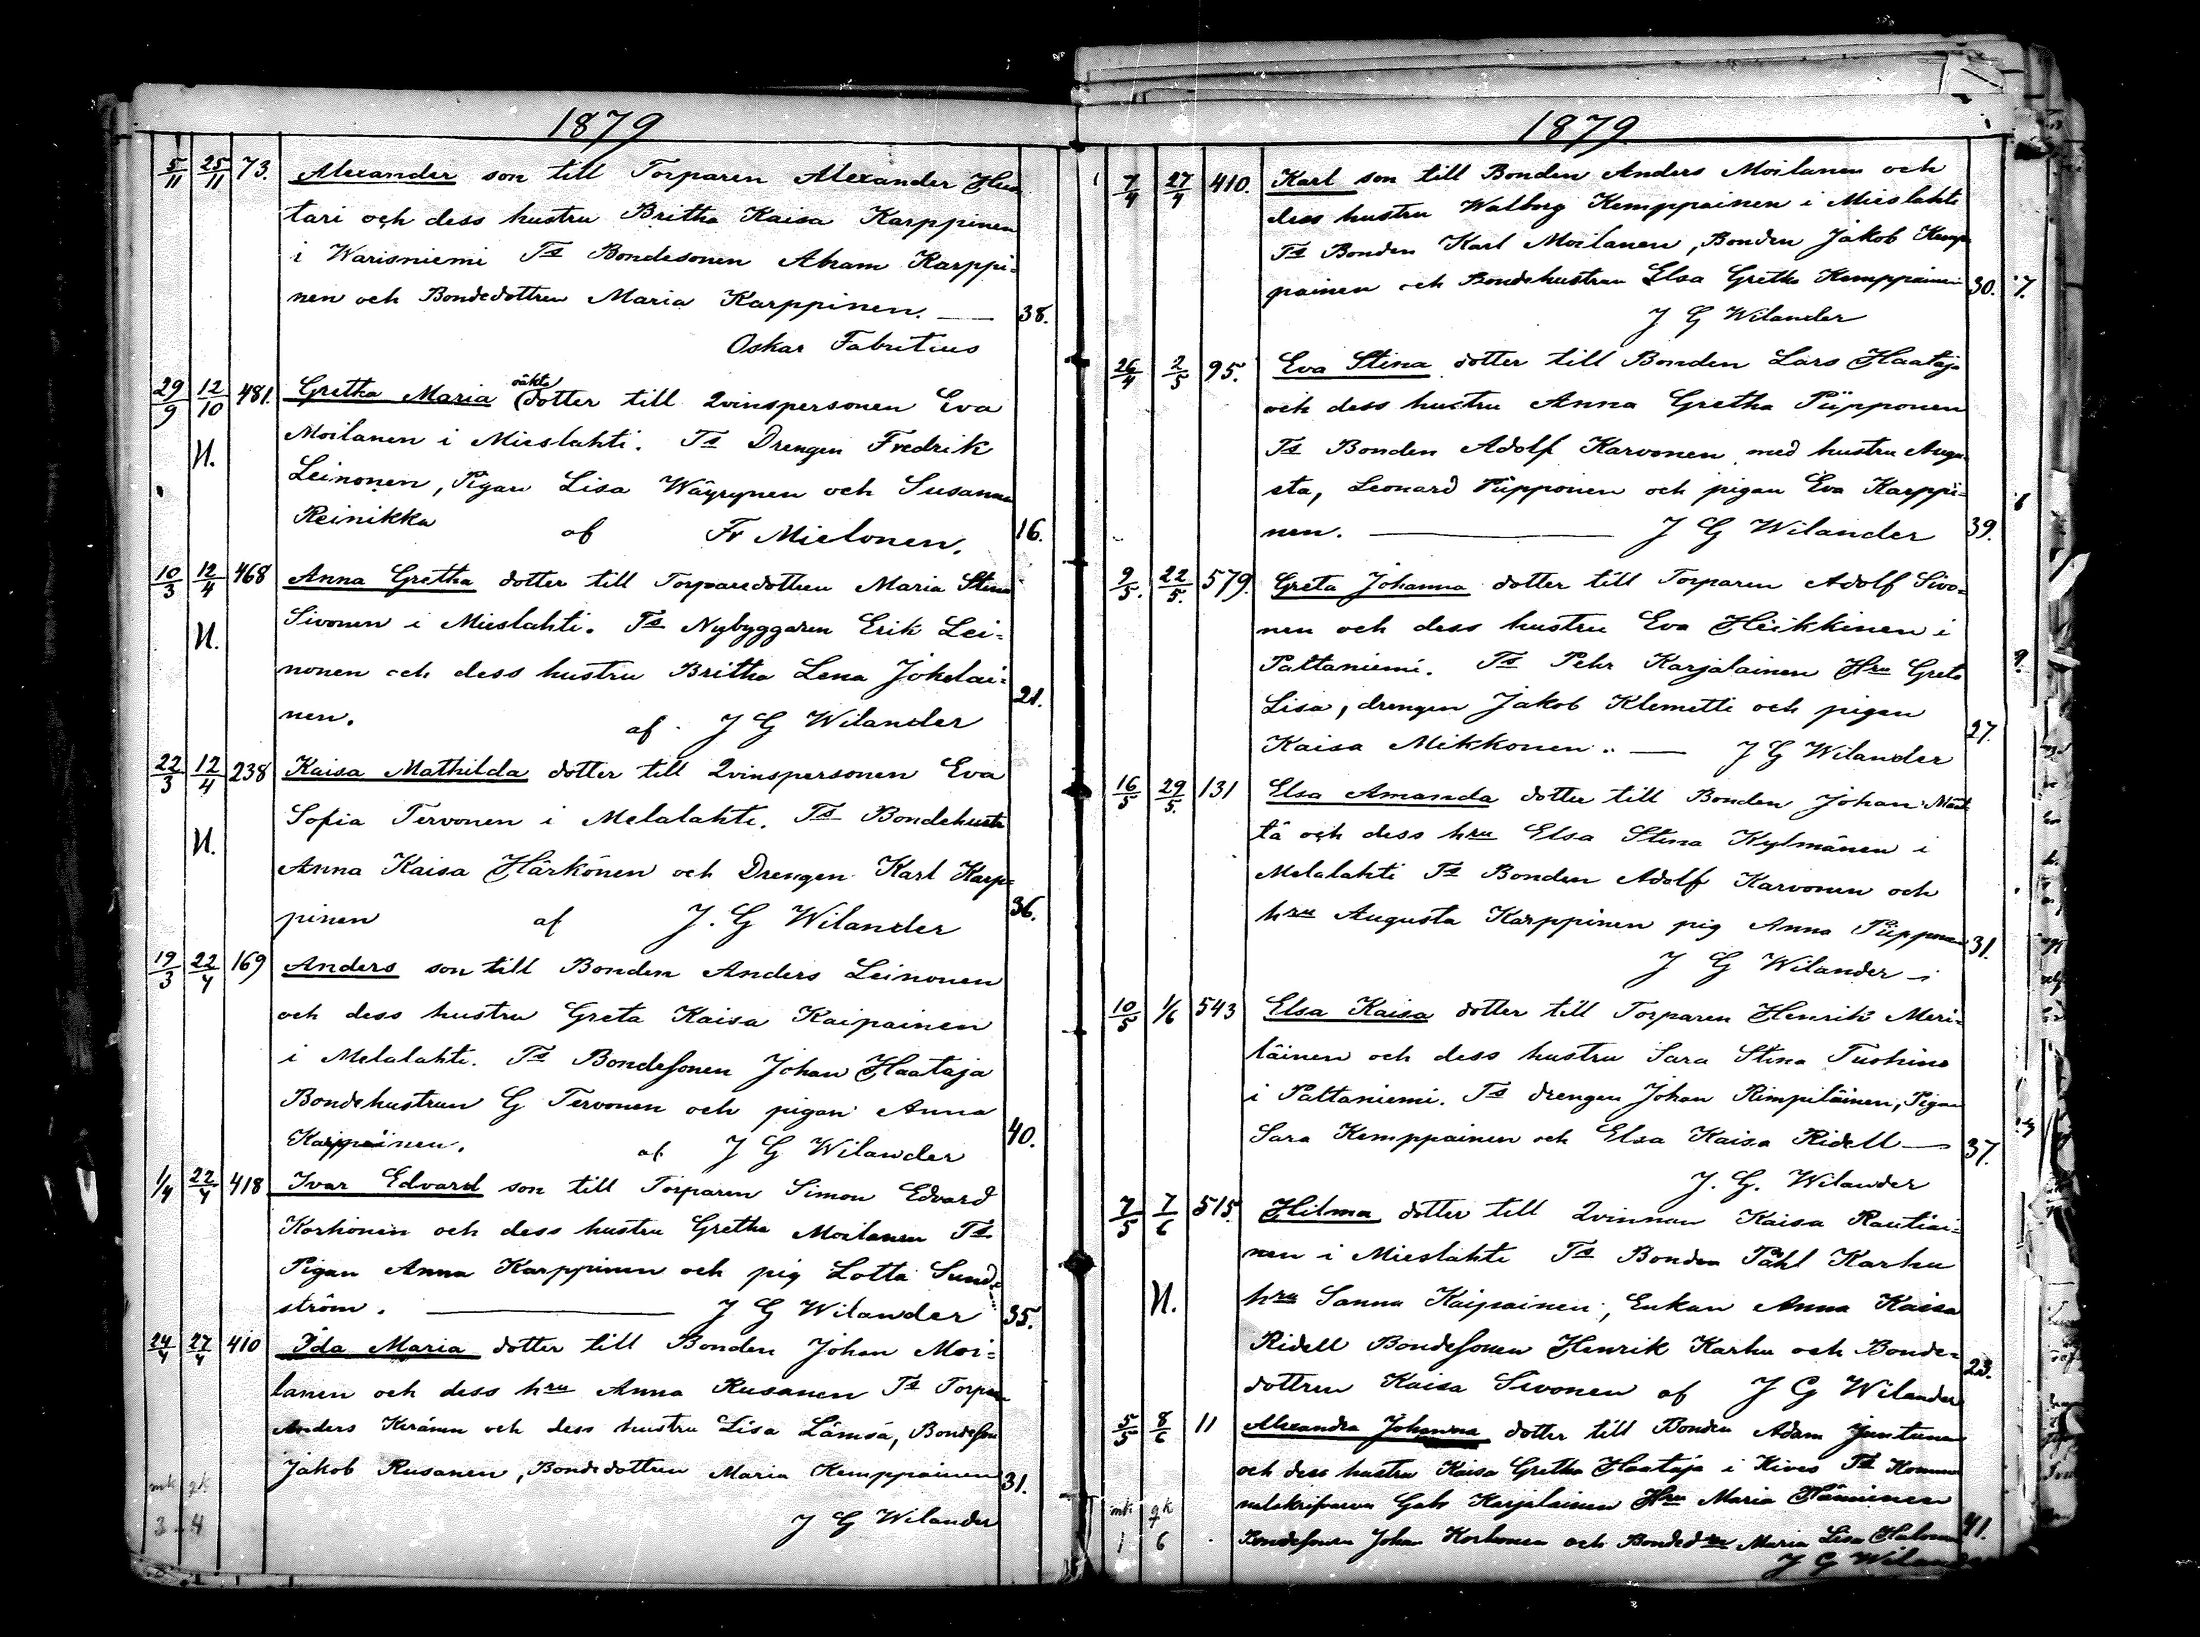 1879
5/11 25/11 73. Alexander son till Torparen Alexander
tari och dess hustru Britha Kaisa Karppinen
i Warisniemi Ts Bondesonen Abram Karppi-
nen och Bondedottren Maria Karppinen. 38.
Oskar Fabritius
29/9 12/10 481. Gretha Maria oäkta dotter till Qvinspersonen Eva
Moilanen i Mieslahti. Ts Drengen Fredrik
N.
Leinonen, Pigan Lisa Wäyrynen och Susanna
Reinikka af Fr Mielonen. 16.
10/3 12/4 468 Anna Gretha dotter till Torparedottren Maria Stina
N. Sivonen i Mieslahti. Ts Nybyggaren Erik Lei-
nonen och dess hustru Britha Lena Jokelai-
nen. af J G Wilander 21.
22/3 12/4 238 Kaisa Mathilda dotter till Qvinspersonen Eva
Sofia Tervonen i Melalahti. Ts Bondehustr
N.
Anna Kaisa Härkönen och Drengen Karl Karp-
pinen af J. G Wilander 36.
19/3 22/4 169 Anders son till Bonden Anders Leinonen
och dess hustru Greta Kaisa Kaipainen
i Melalahti. Ts Bondesonen Johan Haataja
Bondehustrun G Tervonen och pigan Anna
Karppinen. af J G Wilander 40.
1/4 22/4 418 Ivar Edvard son till Torparen Simon Edvard
Korhonen och dess hustru Gretha Moilanen Ts
Pigan Anna Karppinen och pig Lotta Sund-
ström. J G Wilander 35.
24/4 27/4 410 Ida Maria dotter till Bonden Johan Moi-
lanen och dess hru Anna Rusanen Ts Torpar
Anders Keränen och dess hustru Lisa Lämsä, Bondeson
Jakob Rusanen, Bondedottren Maria Kemppainen 31.
mk qk
3 4
J G Wilander
1879.
7/4 27/4 410. Karl son till Bonden Anders Moilanen och
dess hustru Walborg Kemppainen i Mieslahti
Ts Bonden Karl Moilanen, Bonden Jakob Kemp
painen och Bondehustrun Elsa Gretha Kemppainen 30. 7.
J G Wilander
26/4 2/5 95. Eva Stina dotter till Bonden Lars Haataja
och dess hustru Anna Gretha Piipponen
Ts Bonden Adolf Karvonen med hustru Augu-
sta, Leonard Piipponen och pigan Eva Karppi-
nen. J G Wilander 39.
9/5. 22/5. 579. Greta Johanna dotter till Torparen Adolf Sivo-
nen och dess hustru Eva Heikkinen i
Paltaniemi. Ts Pehr Karjalainen Hru Greta
Lisa, drengen Jakob Klemetti och pigan
Kaisa Mikkonen. J G Wilander 27.
16/5 29/5. 131 Elsa Amanda dotter till Bonden Johan Määt
tä och dess hru Elsa Stina Kylmänen i
Melalahti Ts Bonden Adolf Karvonen och
hru Augusta Karppinen pig Anna Piipponen 31.
J G Wilander
10/5 1/6 543 Elsa Kaisa dotter till Torparen Henrik Meri-
läinen och dess hustru Sara Stina
i Paltaniemi. Ts drengen Johan Rimpiläinen, Pigan
Sara Kemppainen och Elsa Kaisa Ridell 37.
J. G. Wilander
7/5 7/6 515. Hilma dotter till Qvinnan Kaisa Rautiai-
nen i Mieslahti Ts Bonden Påhl Karhu
N. hru Sanna Kaipainen, Enkan Anna Kaisa
Ridell Bondesonen Henrik Karhu och Bonde-
dottren Kaisa Sivonen af J G Wilander 23.
5/5 8/6 11 Alexandra Johanna dotter till Bonden Adam Juntunen
och dess hustru Kaisa Gretha Haataja i Kives Ts Kommu
nalskrifvaren Gabr Karjalainen Hru Maria
mk qk
1 6 Bondesonen Johan Korhonen och Bondedtr Maria Lisa 41.
J G Wilander